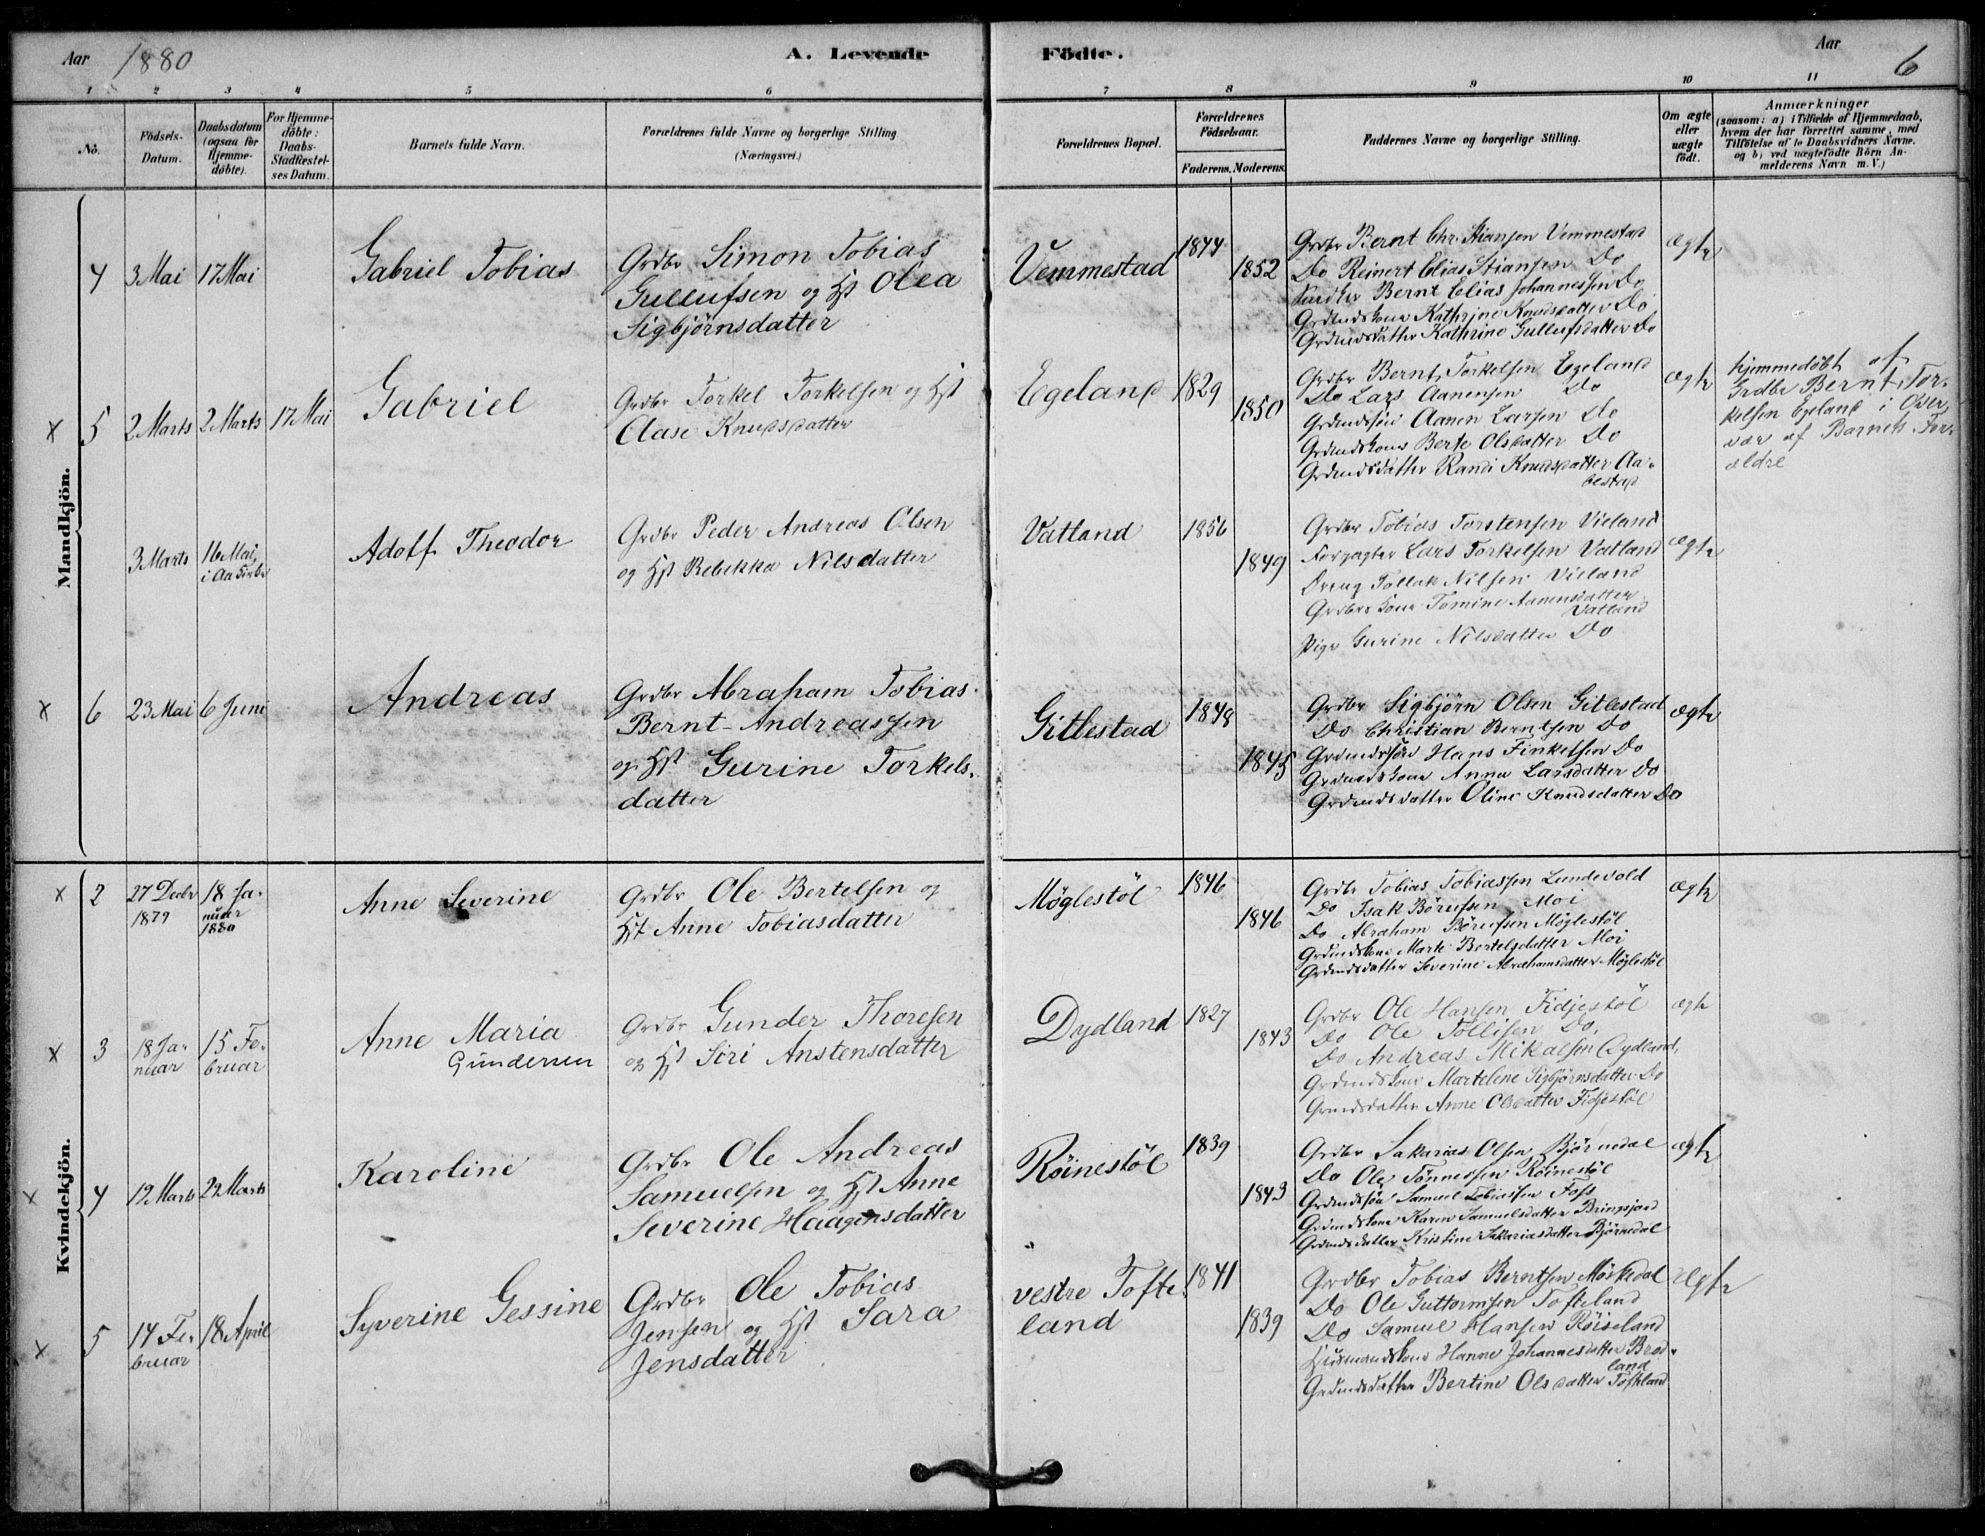 Aar 1880
A. Levende Födte.
Aar 6
1 2 3 4 5 6 7 8 9 10 11
No.
Födsels-Datum.
Daabsdatum (ogsaa for Hjemme-döbte).
For Hjemme-döbte: Daabs-Stadfæstel-ses Datum.
Barnets fulde Navn.
Forældrenes fulde Navne og borgerlige Stilling (Næringsvei.)
Forældrenes Bopæl.
Forældrenes Födselsaar.
Faderens. Moderens.
Faddernes Navne og borgerlige Stilling.
Om ægte eller uægte födt.
Anmærkninger
(saasom: a) i Tilfælde af Hjemmedaab,
hvem der har forrettet samme, med
Tilföielse af to Daabsvidners Navne.
og b) ved uægtefödte Börn An-
melderens Navn m. V.)
Mandkjön.
4 3 Mai 17 Mai
Gabriel Tobias
Grdbr Simon Tobias
Gullufsen og Hst Olea
Sigbjørnsdatter
Vemmestad
1844
1852
Grdbr Bernt Chr. Stiansen Vemmestad
Do Reinert Elias Stiansen Do
Bernt Elias Johannessen Do
Grdmdskone Kathrine Knudsdatter Do
Grdmdsdatter Kathrine Gullufsdatter Do
Ægte
x 5 2 Marts 2 Marts 17 Mai
Gabriel
Grdbr Torkel Torkelsen og Hst
Aase Knudsdatter
Egeland
1829
1850
Grdbr Bernt Torkelsen Egeland
Do Lars Aanensen Do
Grdmdssøn Aanen Larsen Do
Grdmdskone Berte Olsdatter Do
Grdmdsdatter Randi Knudsdatter Aa-
bestad
Ægte
Hjemmedøbt af
Grdbr Bernt Tor-
kelsen Egeland i Over-
vær af Barnets For-
ældre
3 Marts 16 Mai,
Adolf Theodor
Grdbr Peder Andreas Olsen
og Hst Rebekka Nilsdatter
Vatland
1856
1849
Grdbr Tobias Torstensen Vieland
Forpagter Lars Torkelsen Vatland
Dreng Tollak Nilsen Vieland
Grdbr kone Tomine Aanensdatter
Vatland
Pige Gurine Nilsdatter Do
Ægte
x 6 23 Mai 6 Juni
Andreas
Grdbr Abraham Tobias
Bernt-Andreassen
og Hst Gurine Torkels-
datter
Gitlestad
1848
1845
Grdbr Sigbjørn Olsen Gitlestad
Do Christian Berntsen Do
Grdmdssøn Hans Finkelsen Do
Grdmdskone Anna Larsdatter Do
Grdmdsdatter Oline Knudsdatter Do
Ægte
Kvindekjön.
x 2 27 Decbr 1879 18 Ja-
nuar
1880
Anne Severine
Grdbr Ole Bertelsen og
Hst Anne Tobiasdatter
Møglestøl
1846
1846
Grdbr Tobias Tobiassen Lundevold
Do Isak Børufsen Moi
Do Abraham Børufsen Møglestøl
Grdmdskone Marte Bertelsdatter Moi
Grdmdsdatter Severine Abrahamsdatter Møglestøl
Ægte
x 3 18 Ja-
nuar 15 Fe-
bruar
Anne Maria
Gundersen
Grdbr Gunder Thoresen
og Hst Siri Anstensdatter
Dydland
1827
1843
Grdbr Ole Hansen Fidjestøl
Do Ole Tollisen Do,
Do Andreas Mikalsen Dydland,
Grdmdskone Martelene Sigbjørnsdatter Do
Grmdsdatter Anne Olsdatter Fidjestøl
Ægte
x 4 12 Marts 22 Marts
Karoline
Grdbr Ole Andreas
Samuelsen og Hst Anne
Severine Haagensdatter
Röinestöl
1839
1843
Grdbr Sakarias Olsen Bjørnedal
Do Ole Tönnessen Röinestöl
Grdmdssøn Samuel Tobiassen Foss
Grdmdskone Karen Samuelsdatter Bringsjord
Grdmdsdatter Kristine Sakariasdatter Bjørnedal
Ægte
x 5 14 Fe-
bruar 18 April
Syverine Gessine
Grdbr Ole Tobias
Jensen og Hst Sara
Jensdatter
vestre Tofte-
land
1841
1839
Grdbr Tobias Berntsen Mørkedal
Do Ole Guttormsen Tofteland
Do Samuel Hansen Røiseland
Husmandskone Hanne Johannesdatter Bred-
land
Grdmdsdatter Bertine Olsdatter Tofteland
Ægte